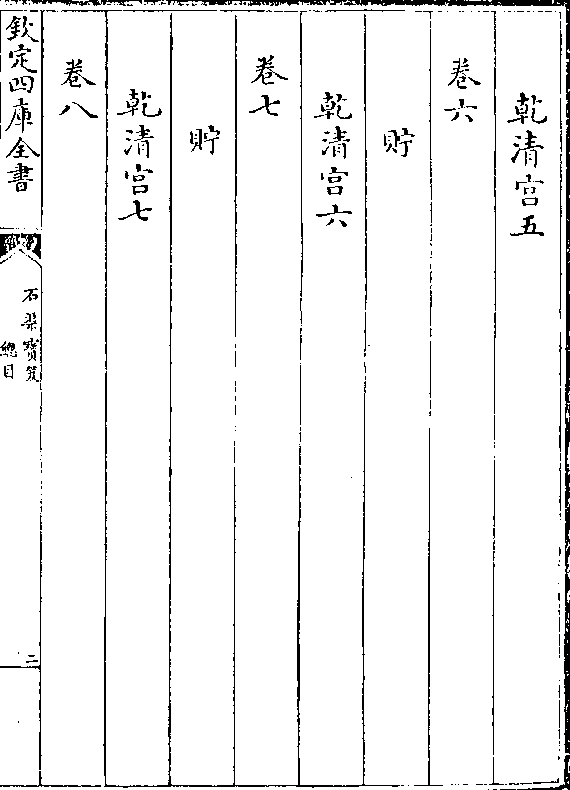 乾清宮五
卷六
貯
乾清宮六
卷七
貯
乾清宮七
卷八
欽定四庫全書
石渠寶笈
總目
二